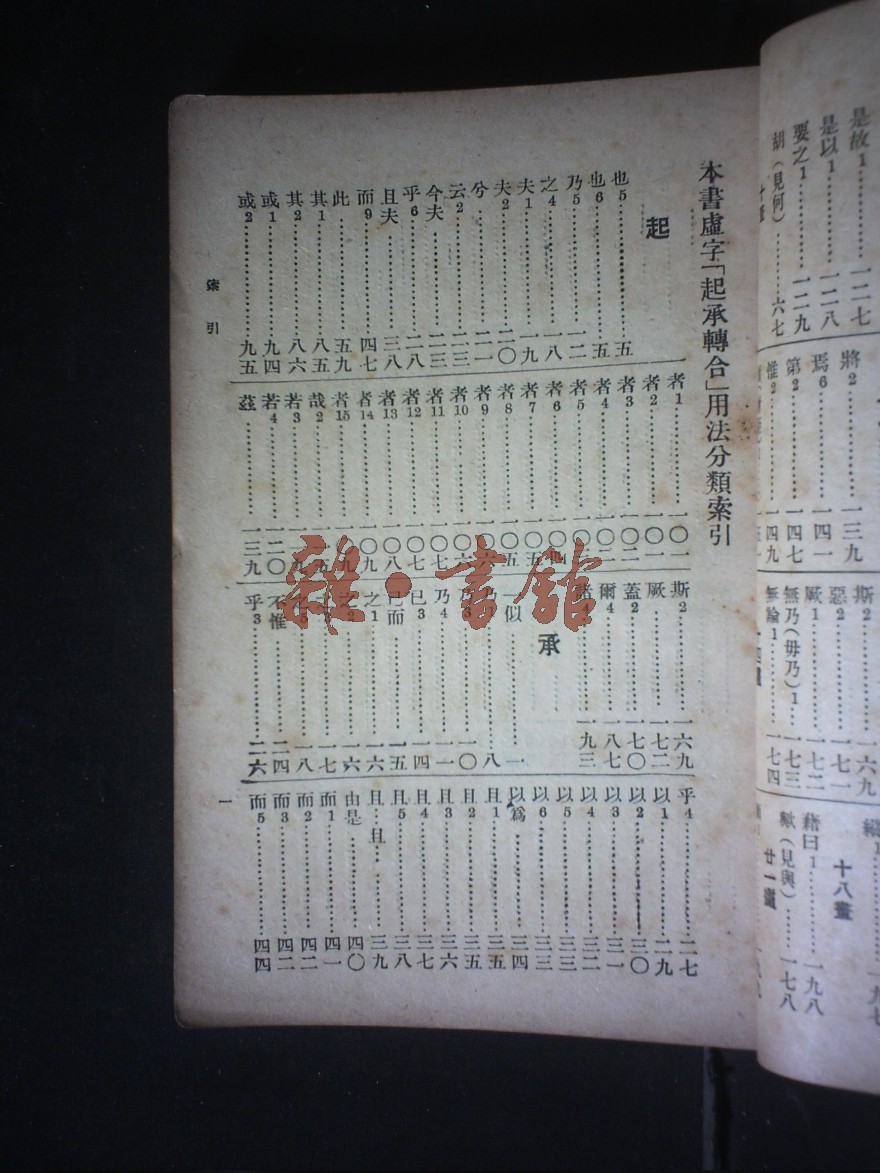 本書虛字「起承轉合」用法分類索引
起
也5……五
也6……五
乃5……一二
之4……一八
夫1……一九
夫2……二〇
兮……二一
云2……二三
今夫……二三
乎6……二八
且夫……三八
而9……四七
此……五九
其1……八五
其2……八六
或1……九四
或2……九五
者1……一〇一
者2……一〇一
者3……一〇二
者4……一〇二
者5
者6
者7
者8
者9
者10
者11
者12
者13
者14
者15
哉2
若3
若4……一二〇
茲……一三九
斯2……一六九
厥……一七二
蓋2……一七〇
爾4……一八七
諸4……一九三
承
一似……一
乃1……八
乃3……一〇
乃4……一一
已3……一四
已而……一五
之1……一六
之2……一六
一七
一八
不惟……二四
乎3……二六
乎4……二七
以1……二九
以2……三〇
以3……三一
以4……三二
以5……三三
以6……三三
以爲……三四
且1……三五
且2……三五
且3……三六
且4……三七
且5……三八
且…且……三九
由是……四〇
而1……四一
而2……四二
而3……四二
而5……四四
索引
一
是故1……一二七
是以1……一二八
要之1……一二九
胡(見何)……六七
將2……一三九
焉6……一四一
第2……一四七
惟2……一四九
斯2……一六九
惡2……一七一
厥1……一七二
無乃(毋乃)1……一七三
無論1……一七四
十八畫
藉曰1……一九八
歟(見與)……一七八
廿一畫
雜·書館